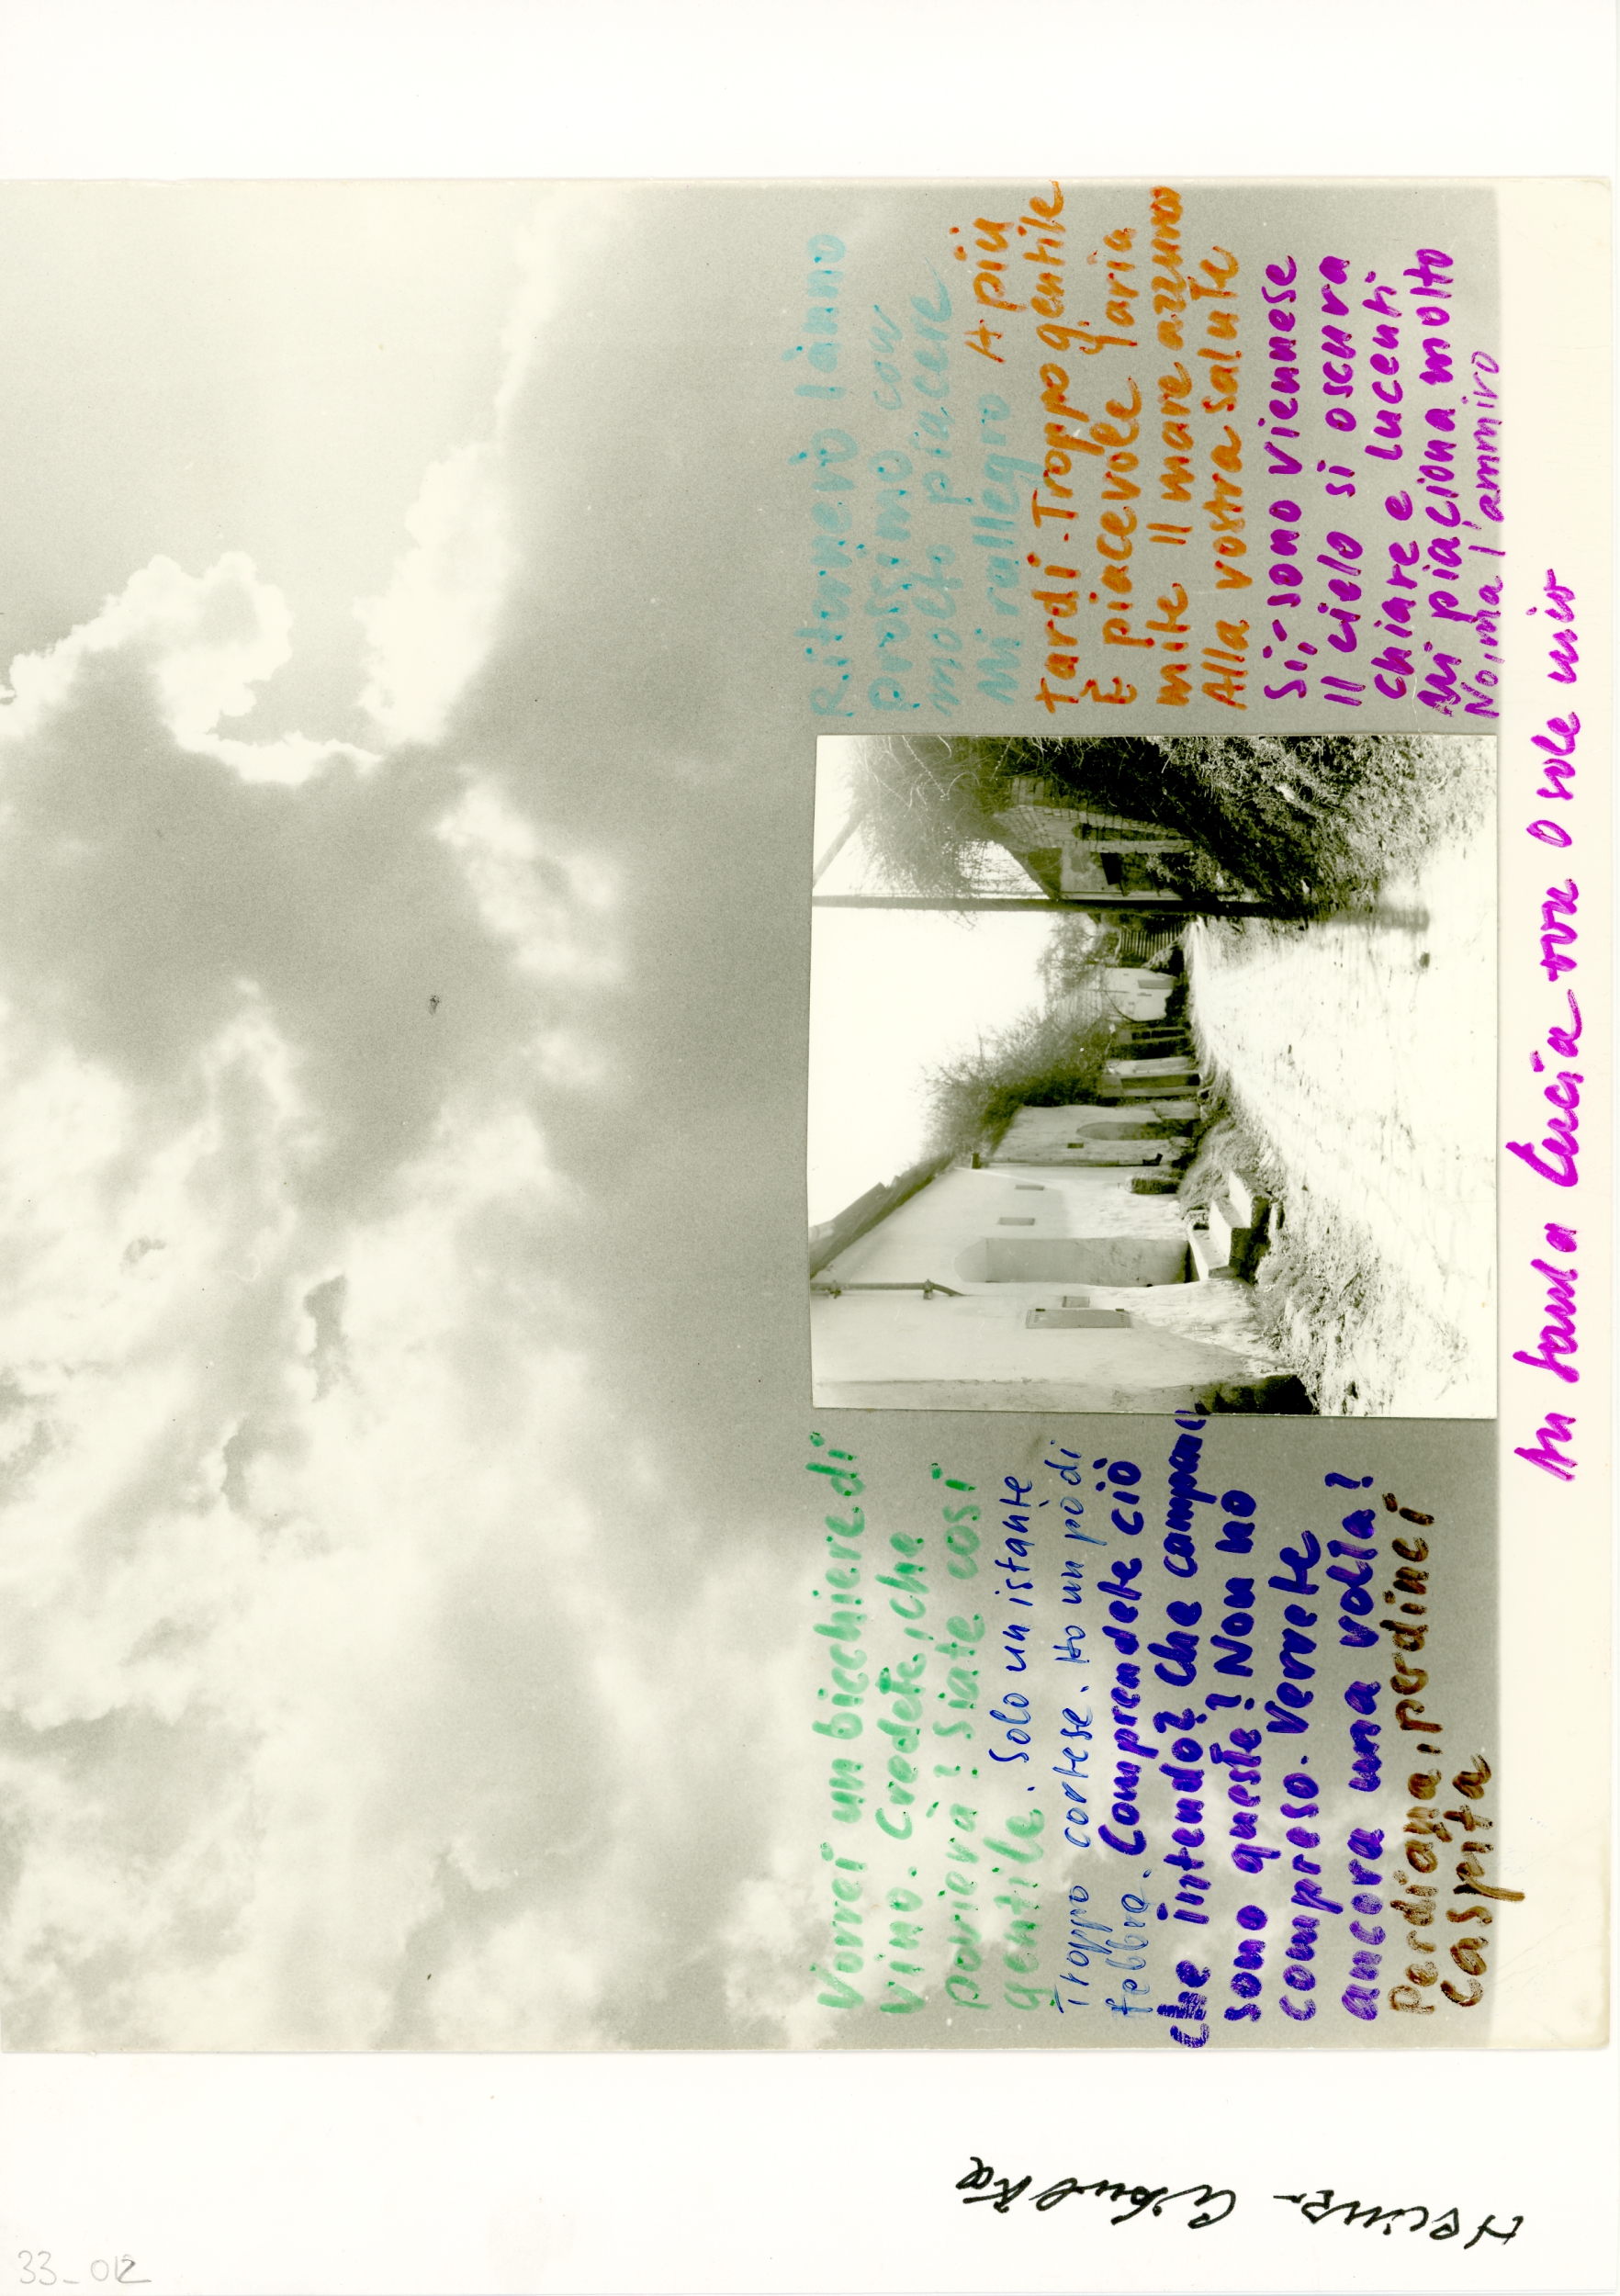 Vorrei un bicchiere di
vino. Credete, che
poverà? Siate così
gentile. Solo un istante
Troppo cortese. Ho un pò di
febbre. Comprendete ciò
che intendo? Che campane
sono queste? Non ho
compreso. Verrete
ancora una volta?
Perdiana, perdinci
Caspita
Ritornerò lànno
prossimo con
molto piacere
Mi rallegro A più
tardi - Troppo gentile
È piacevole l'aria
mite Il mare azzurro
Alla vostra salute
Sì, sono viennese
Il cielo si oscura
Chiare e lucenti
Mi piaciona molto
Norma l'ammiro
Santa Lucia O sole mio
33-012